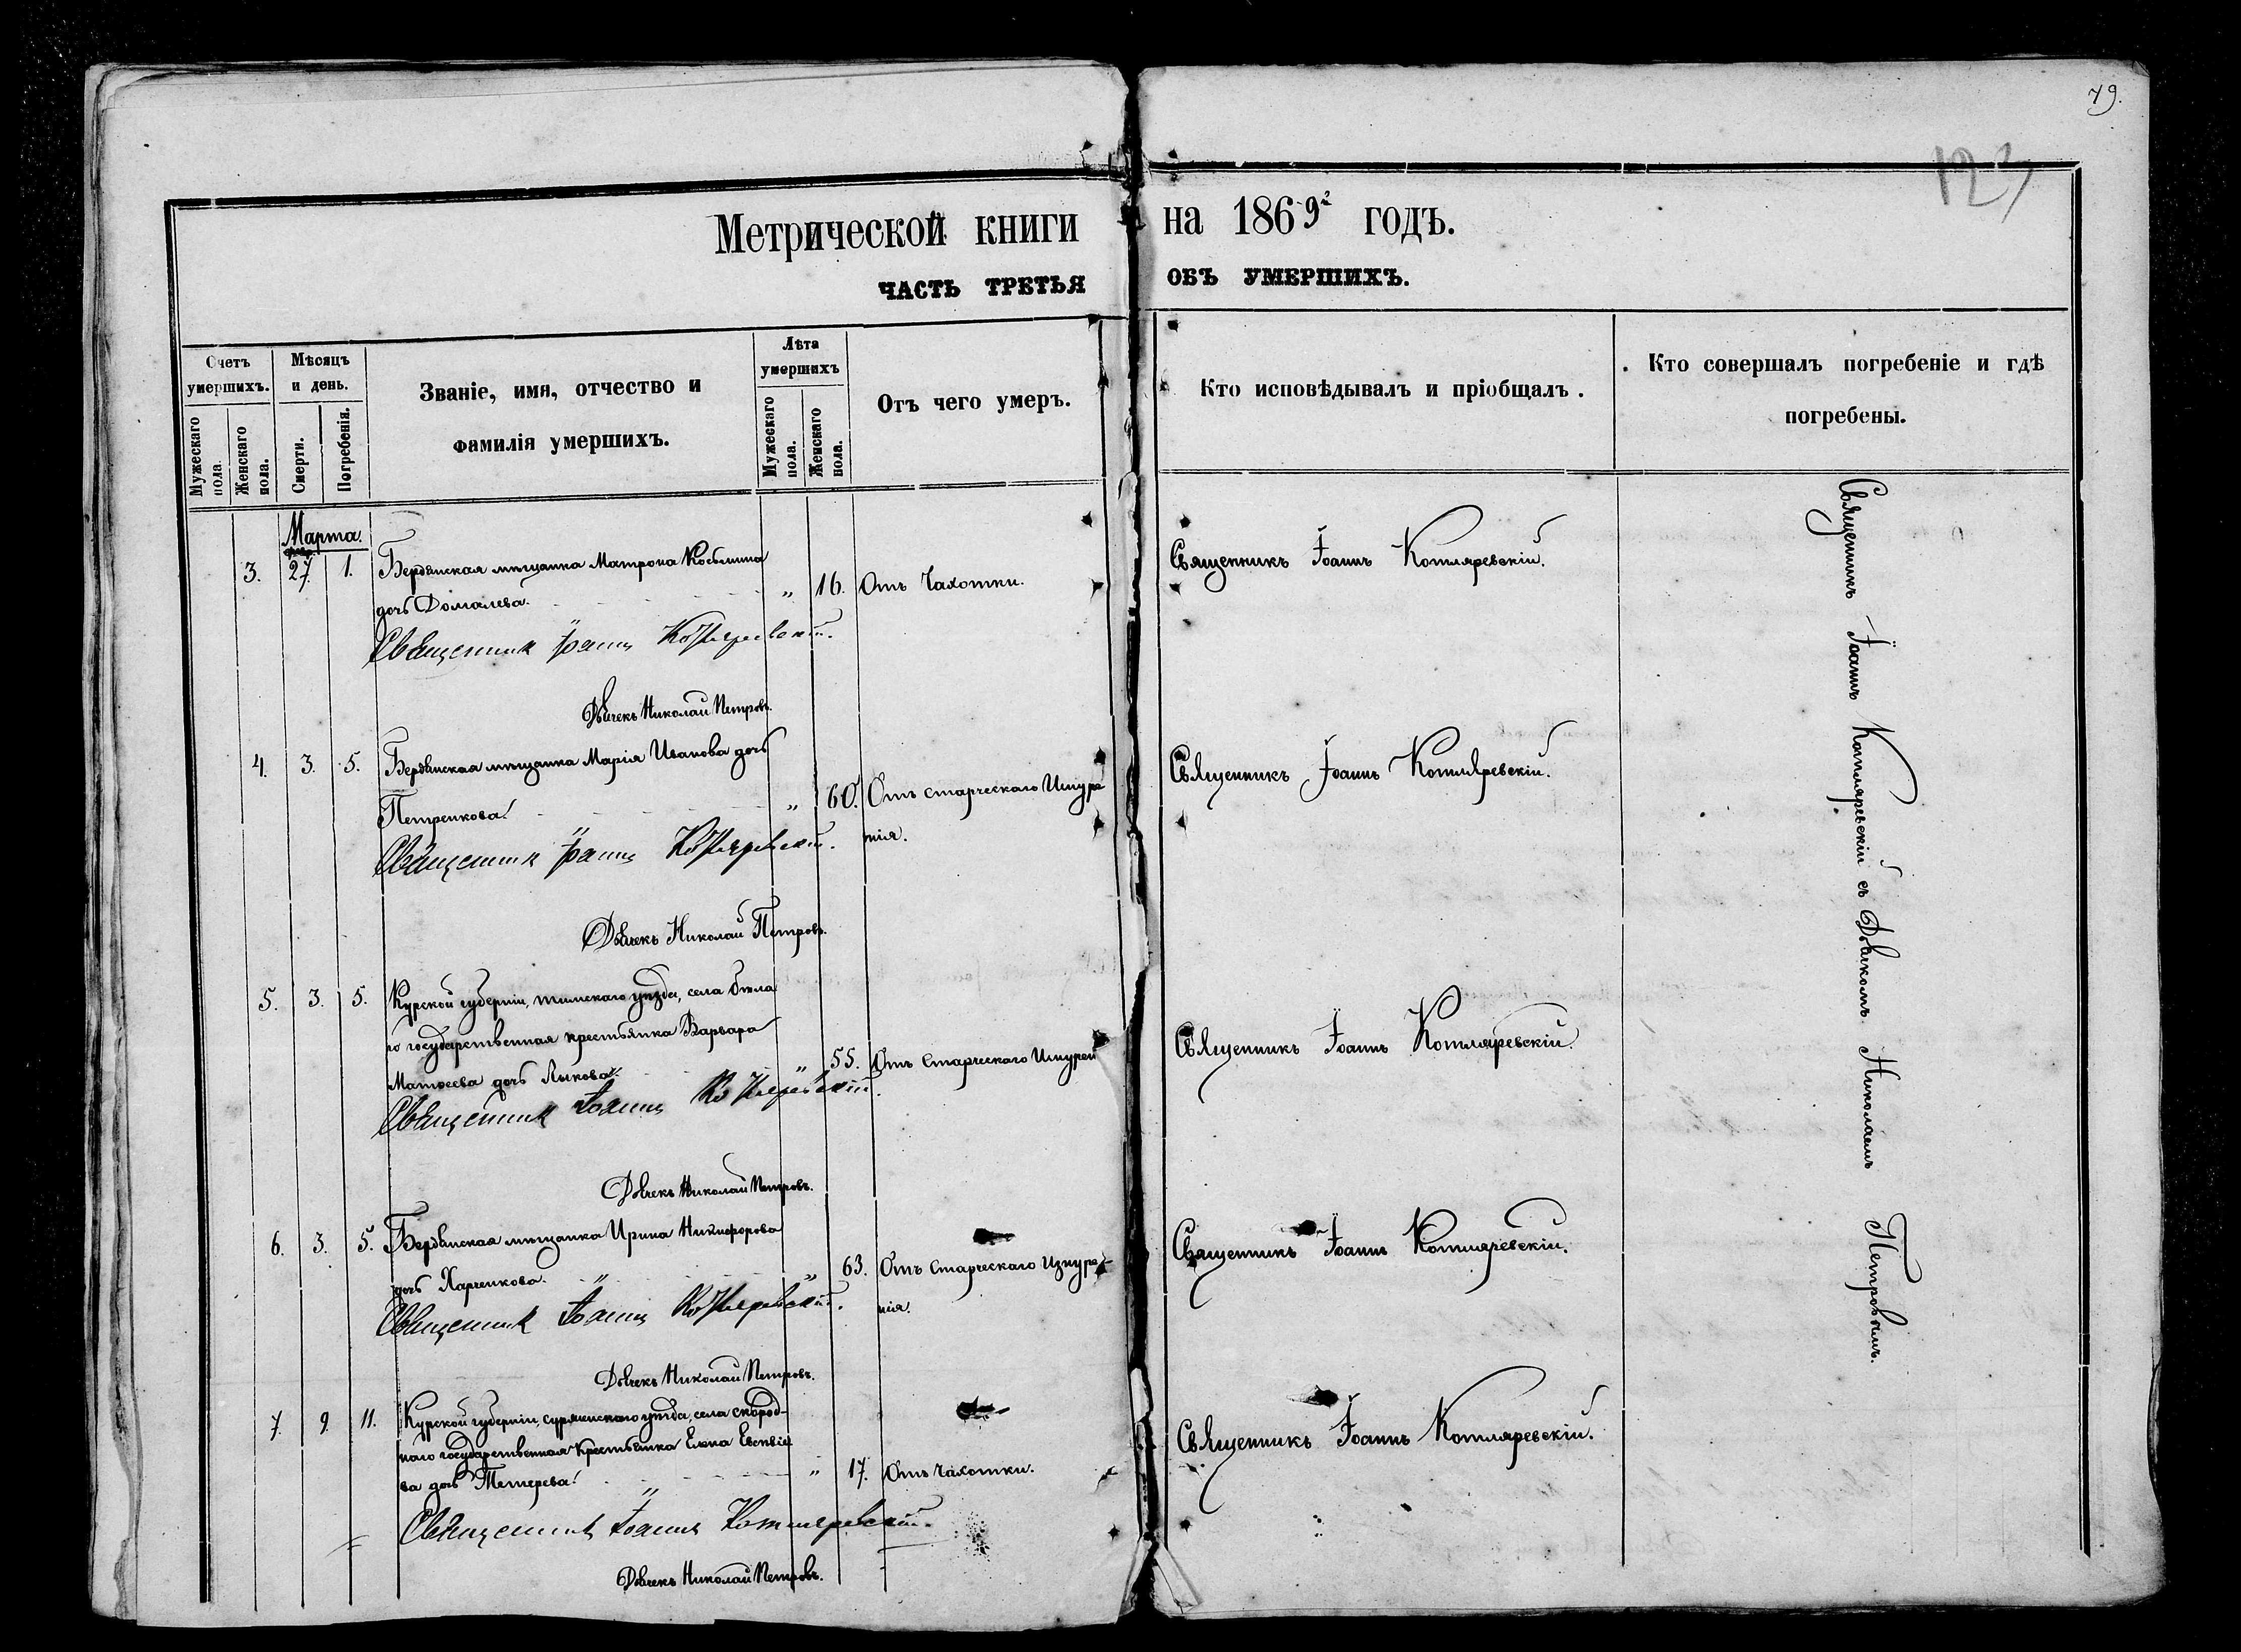 79.
127
Метрической книги на 1869г годъ.
ЧАСТЬ ТРЕТЬЯ ОБЪ УМЕРШИХЪ.
Счетъ умершихъ.
Мужескаго пола.
Женскаго пола.
Мѣсяцъ и день.
Смерти.
Погребенія.
Званіе, имя, отчество и
фамилія умершихъ.
Лѣта умершихъ
Мужескаго пола.
Женскаго пола.
Отъ чего умеръ.
Кто исповѣдывалъ и пріобщалъ.
Кто совершалъ погребеніе и гдѣ
погребены.
Марта.
3. 27. 1. Бердянская мѣщанка Матрона Косьмина
дочь Домалева. " 16. Отъ Чахотки. Священникъ Іоаннъ Котляревскій.
Священникъ Іоаннъ Котляревскій.
Дьячекъ Николай Петровъ.
4. 3. 5. Бердянская мѣщанка Марія Иванова дочь
Петренкова. " 60. Отъ старческаго Изнуре Священникъ Іоаннъ Котляревскій.
нія.
Священникъ Іоаннъ Котляревскій.
Дьячекъ Николай Петровъ.
5. 3. 5. Курской губерніи, тимскаго уѣзда, села
го государственная крестьянка Варвара
Матвеева дочь Лыкова. " 55. Отъ Старческаго Изнурен Священникъ Іоаннъ Котляревскій.
Священникъ Іоаннъ Котляревскій.
Дьячекъ Николай Петровъ.
6. 3. 5. Бердянская мѣщанка Ирина Никифорова
дочь Харченкова. " 63. Отъ Старческаго Изнуре- Священникъ Іоаннъ Котляревскій.
нія.
Священникъ Іоаннъ Котляревскій.
Дьячекъ Николай Петровъ.
7. 9. 11. Курской губерніи, уѣзда, села скород-
наго государственная крестьянка Елена
ва дочь Тетерева. " 17. Отъ Чахотки. Священникъ Іоаннъ Котляревскій.
Священникъ Іоаннъ Котляревскій.
Дьячекъ Николай Петровъ.
Священникъ Іоаннъ Котляревскій съ Дьячкомъ Николаемъ Петровымъ.